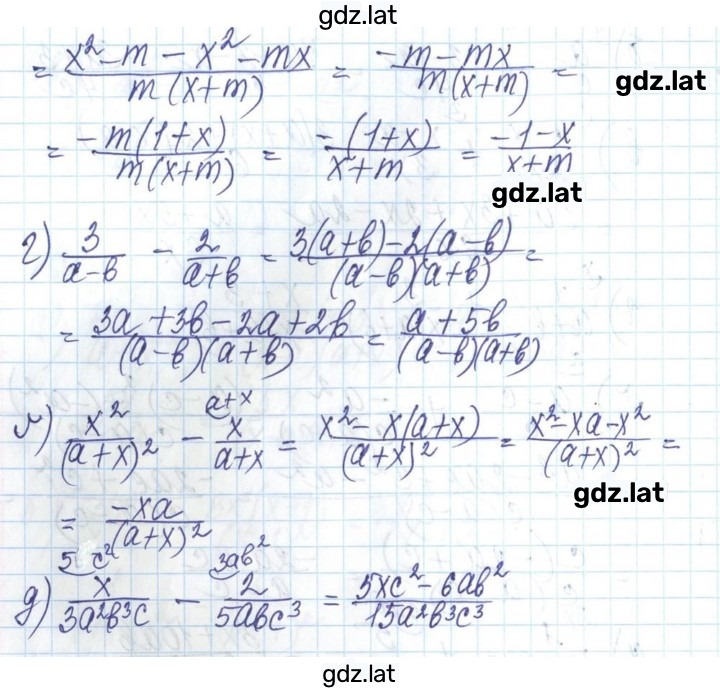 gdz.lat
= (x² - m - x² - mx)/(m(x+m)) = (-m - mx)/(m(x+m)) =
gdz.lat
= (-m(1+x))/(m(x+m)) = (-(1+x))/(x+m) = (-1-x)/(x+m)
gdz.lat
г) 3/(a-b) - 2/(a+b) = (3(a+b)-2(a-b))/((a-b)(a+b)) =
= (3a+3b-2a+2b)/((a-b)(a+b)) = (a+5b)/((a-b)(a+b))
a+x
x²/(a+x)² - x/(a+x) = (x²-x(a+x))/(a+x)² = (x²-xa-x²)/(a+x)² =
gdz.lat
= -xa/(a+x)²
5 c² 3ab²
д) x/(3a²b³c) - 2/(5abc³) = (5xc²-6ab²)/(15a²b³c³)
gdz.lat